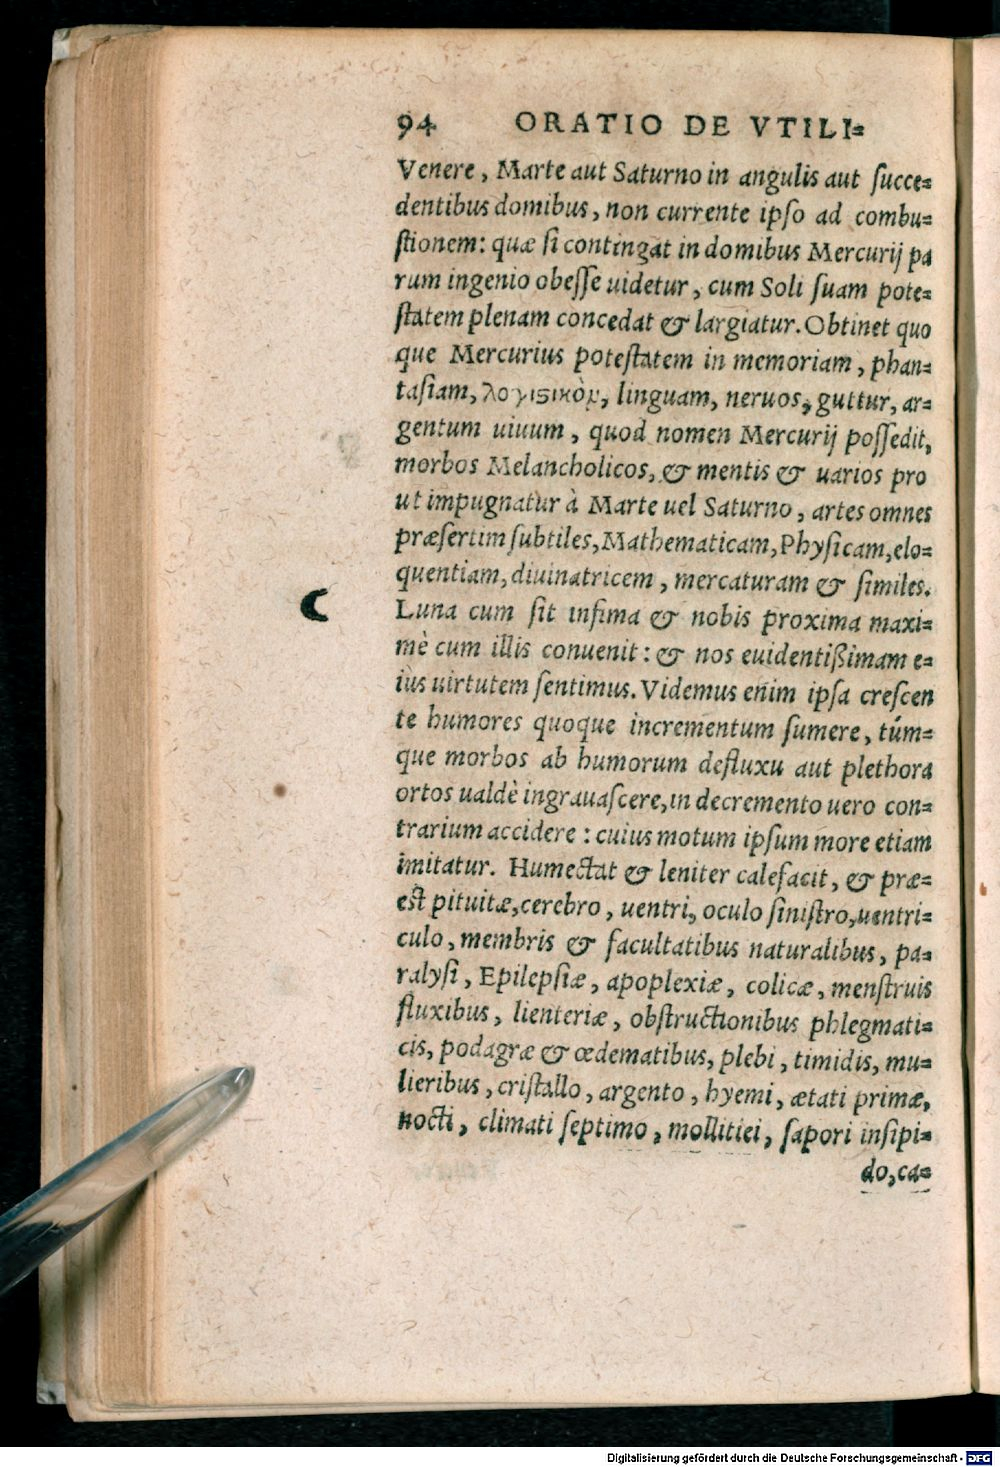 94 ORATIO DE VTILI=
Venere, Marte aut Saturno in angulis aut ſucce=
dentibus domibus, non currente ipſo ad combu=
ſtionem: quæ ſi contingat in domibus Mercurij pa
rum ingenio obeſſe uidetur, cum Soli ſuam pote=
ſtatem plenam concedat & largiatur. Obtinet quo
que Mercurius poteſtatem in memoriam, phan=
taſiam, λογιϛικὸμ, linguam, neruos, guttur, ar=
gentum uiuum, quod nomen Mercurij poſſedit,
morbos Melancholicos, & mentis & uarios pro
ut impugnatur à Marte uel Saturno, artes omnes
præſertim ſubtiles, Mathematicam, Phyſicam, elo=
quentiam, diuinatricem, mercaturam & ſimiles.
☾ Luna cum ſit infima & nobis proxima maxi=
mè cum illis conuenit: & nos euidentißimam e=
iùs uirtutem ſentimus. Videmus enim ipſa creſcen
te humores quoque incrementum ſumere, túm=
que morbos ab humorum defluxu aut plethora
ortos ualdè ingrauaſcere, in decremento uero con=
trarium accidere: cuius motum ipſum more etiam
imitatur. Humectat & leniter calefacit, & præ=
eſt pituitæ, cerebro, uentri, oculo ſiniſtro, uentri=
culo, membris & facultatibus naturalibus, pa=
ralyſi, Epilepſiæ, apoplexiæ, colicæ, menſtruis
fluxibus, lienteriæ, obſtructionibus phlegmati=
cis, podagræ & œdematibus, plebi, timidis, mu=
lieribus, criſtallo, argento, hyemi, ætati primæ,
nocti, climati ſeptimo, mollitiei, ſapori inſipi=
do, ca=
Digitalisierung gefördert durch die Deutsche Forschungsgemeinschaft - DFG